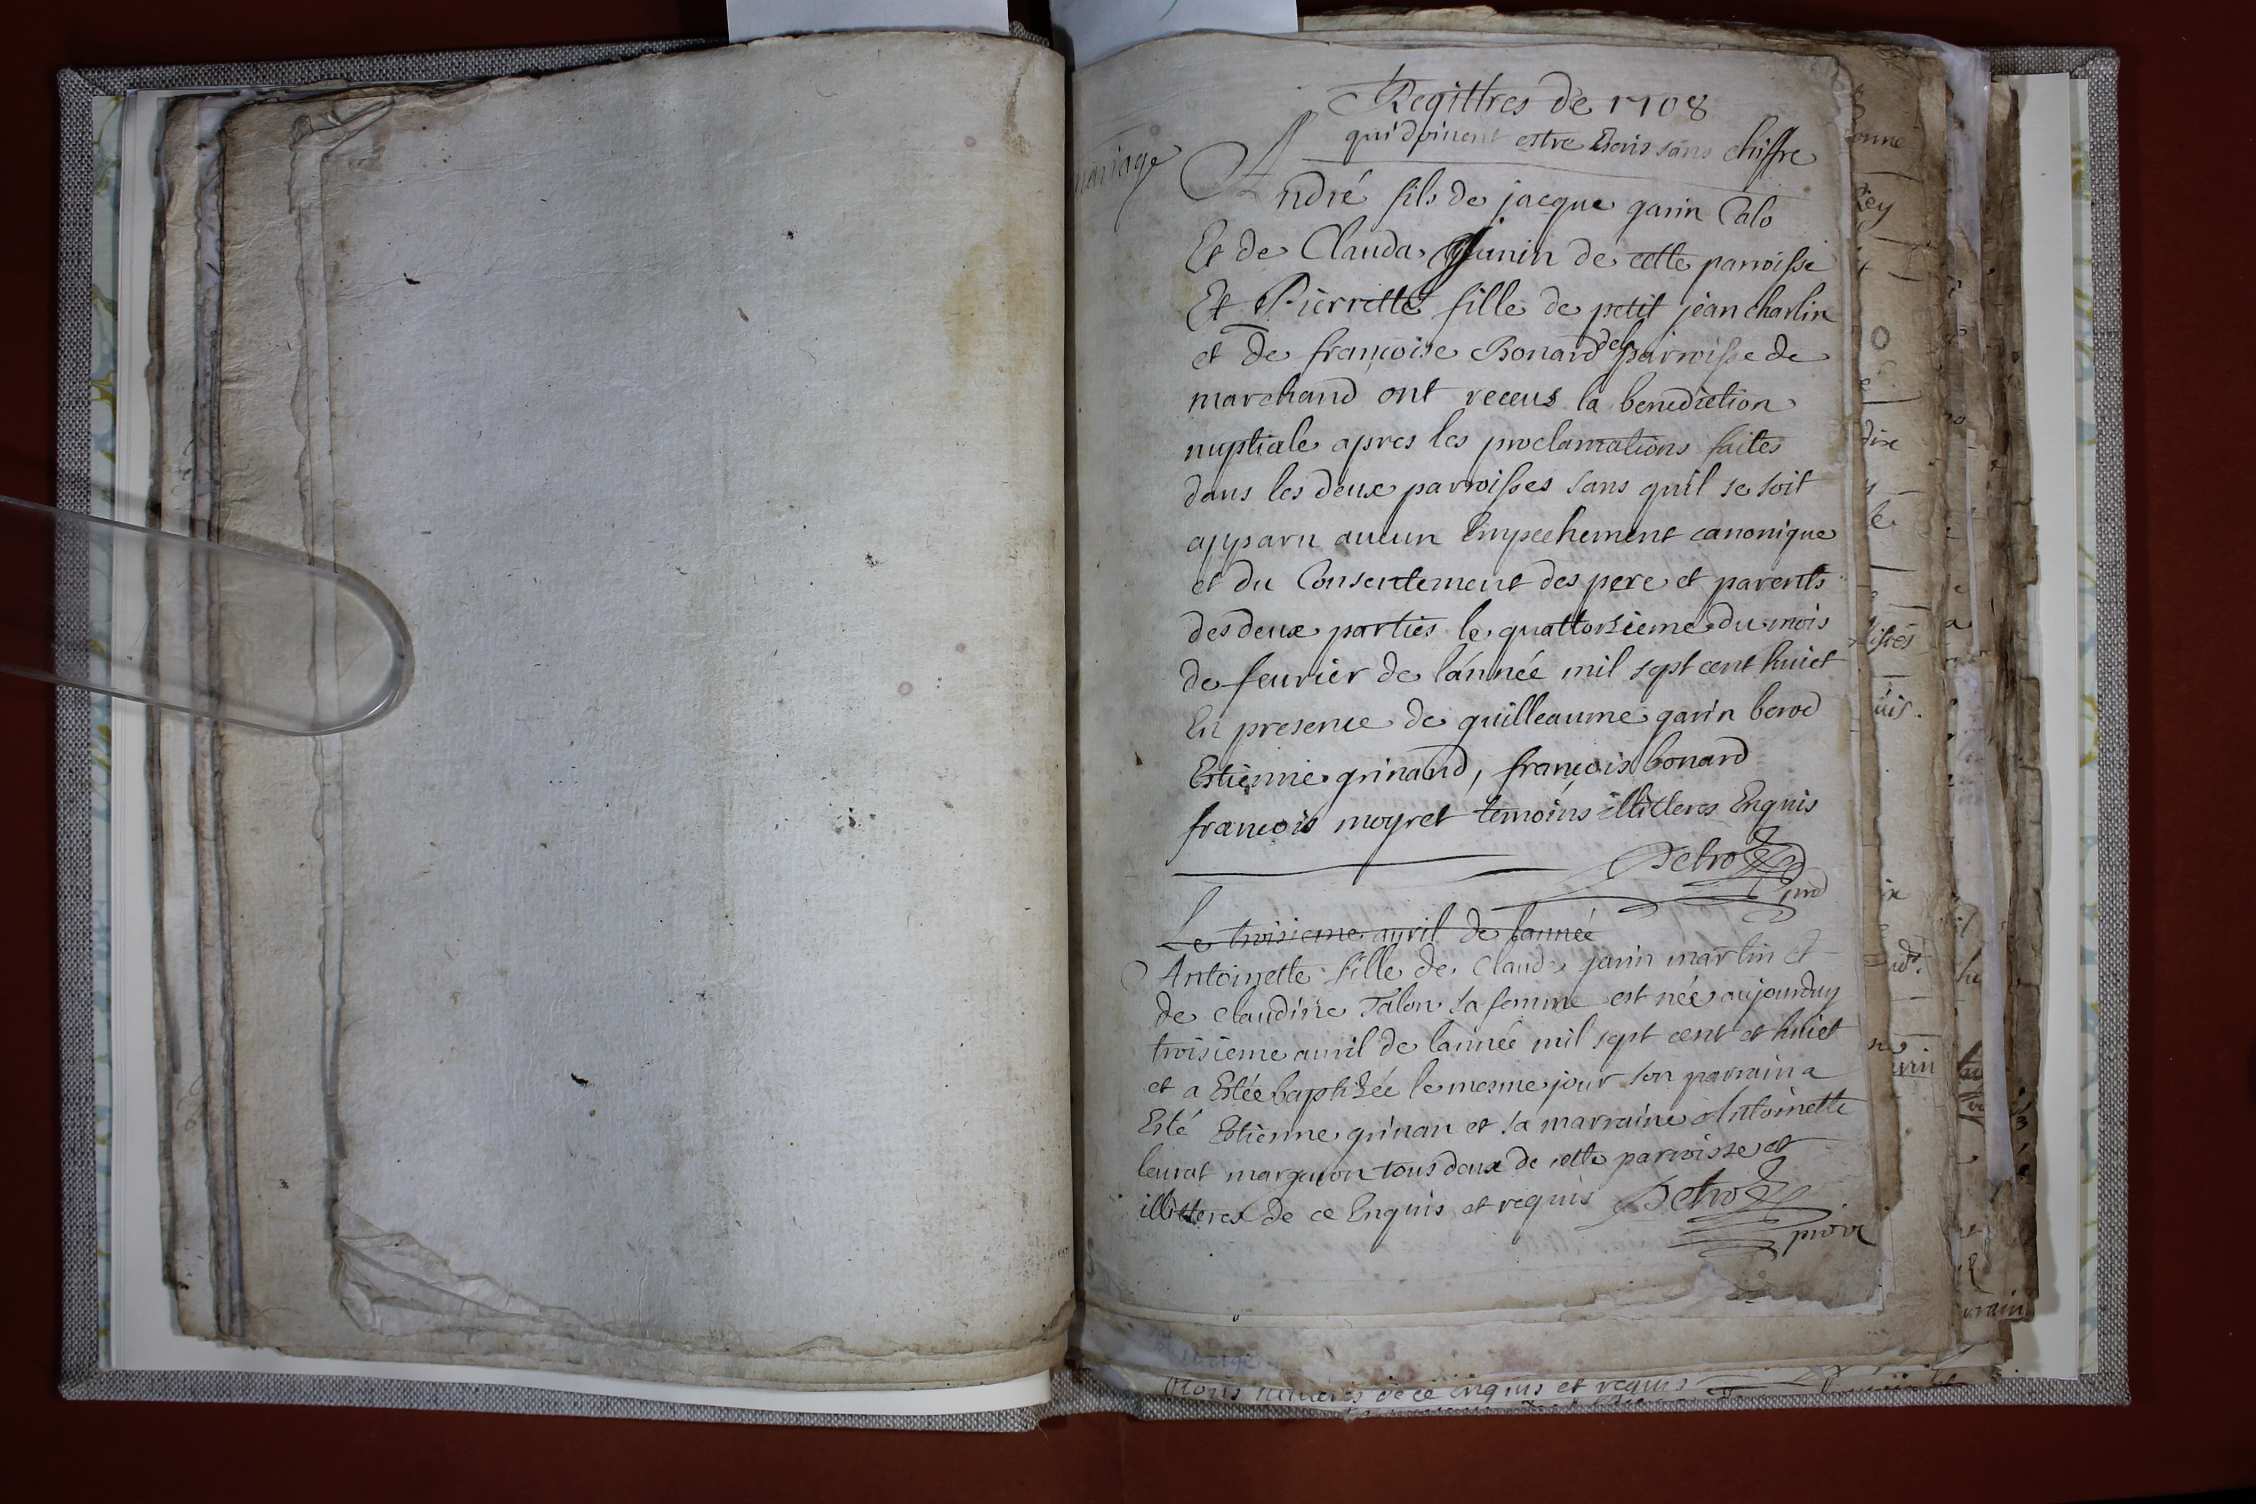 Regittres de 1708
qui doivent estre Ecris sans chiffre
mariage
André fils de jacque garin Talo
Et de Clauda junin de cette parroisse
Et Pierrette fille de petit jean charlin
et de françoise Bonard de la parroisse de
marchand ont receus la benediction
nuptiale apres les proclamations faites
dans les deux parroisses sans quil se soit
apparu aucun Empechement canonique
et du Consentement des pere et parents
des deux parties le quattorzieme du mois
de feurier de lannée mil sept cent huict
En presence de guilleaume garin berod
Estienne grinand, françois bonard
françois moyret temoins illitteres Enquis
Detroz
Le troisieme avril de lannée
Antoinette fille de Claude garin martin et
de claudine Talon sa femme est née aujourduy
troisieme auril de lannée mil sept cent et huict
et a Estée baptizée le mesme jour son parrain a
Esté Estienne grinan et sa marraine Antoinette
leurat marguon tous deux de cette parroisse et
illitteres de ce Enquis et requis Detroz